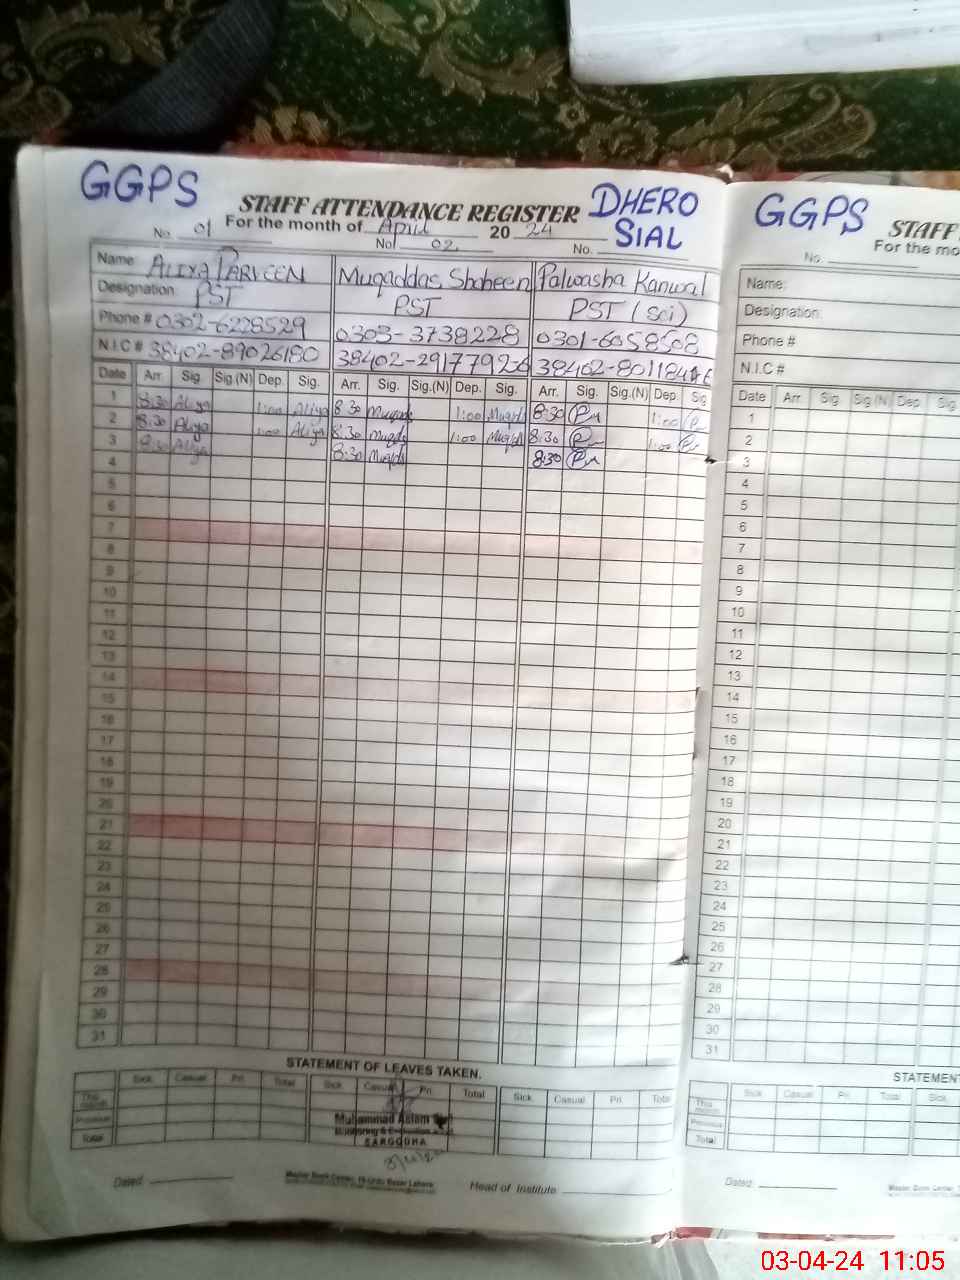 GGPS STAFF ATTENDANCE REGISTER DHERO SIAL
For the month of April 2024
No. 01 No 02 No.
Name: ALIYA PARVEEN Muqaddas Shaheen Palwasha Kanwal
Designation: PST PST PST (Sci)
Phone # 0302-6228529 0303-3738228 0301-6058508
N.I.C # 38402-89026180 38402-2917792-6
Date Arr. Sig. Sig.(N) Dep. Sig. Arr. Sig. Sig.(N) Dep. Sig. Arr. Sig. Sig.(N) Dep. Sig
1 8:30 Aliya 1:00 Aliya 8:30 1:00 8:30 1:00
2 8:30 Aliya 1:00 Aliya 8:30 1:00 8:30 1:00
3 8:30 Aliya 8:30 8:30
4
5
6
7
8
9
10
11
12
13
14
15
16
17
18
19
20
21
22
23
24
25
26
27
28
29
30
31
STATEMENT OF LEAVES TAKEN.
Sick. Casual Pri. Total Sick Casual Pri. Total Sick. Casual Pri. Total
This month
Previous
Total
Muhammad Aslam
Monitoring &
SARGODHA
Dated: Head of Institute
Master Book Center, Urdu Bazar Lahore
GGPS STAFF
For the mo
No.
Name:
Designation:
Phone #
N.I.C #
Date Arr. Sig. Sig.(N) Dep. Sig.
1
2
3
4
5
6
7
8
9
10
11
12
13
14
15
16
17
18
19
20
21
22
23
24
25
26
27
28
29
30
31
STATEMENT
Sick Casual Pri. Total Sick.
This month
Previous
Total
Dated:
03-04-24 11:05